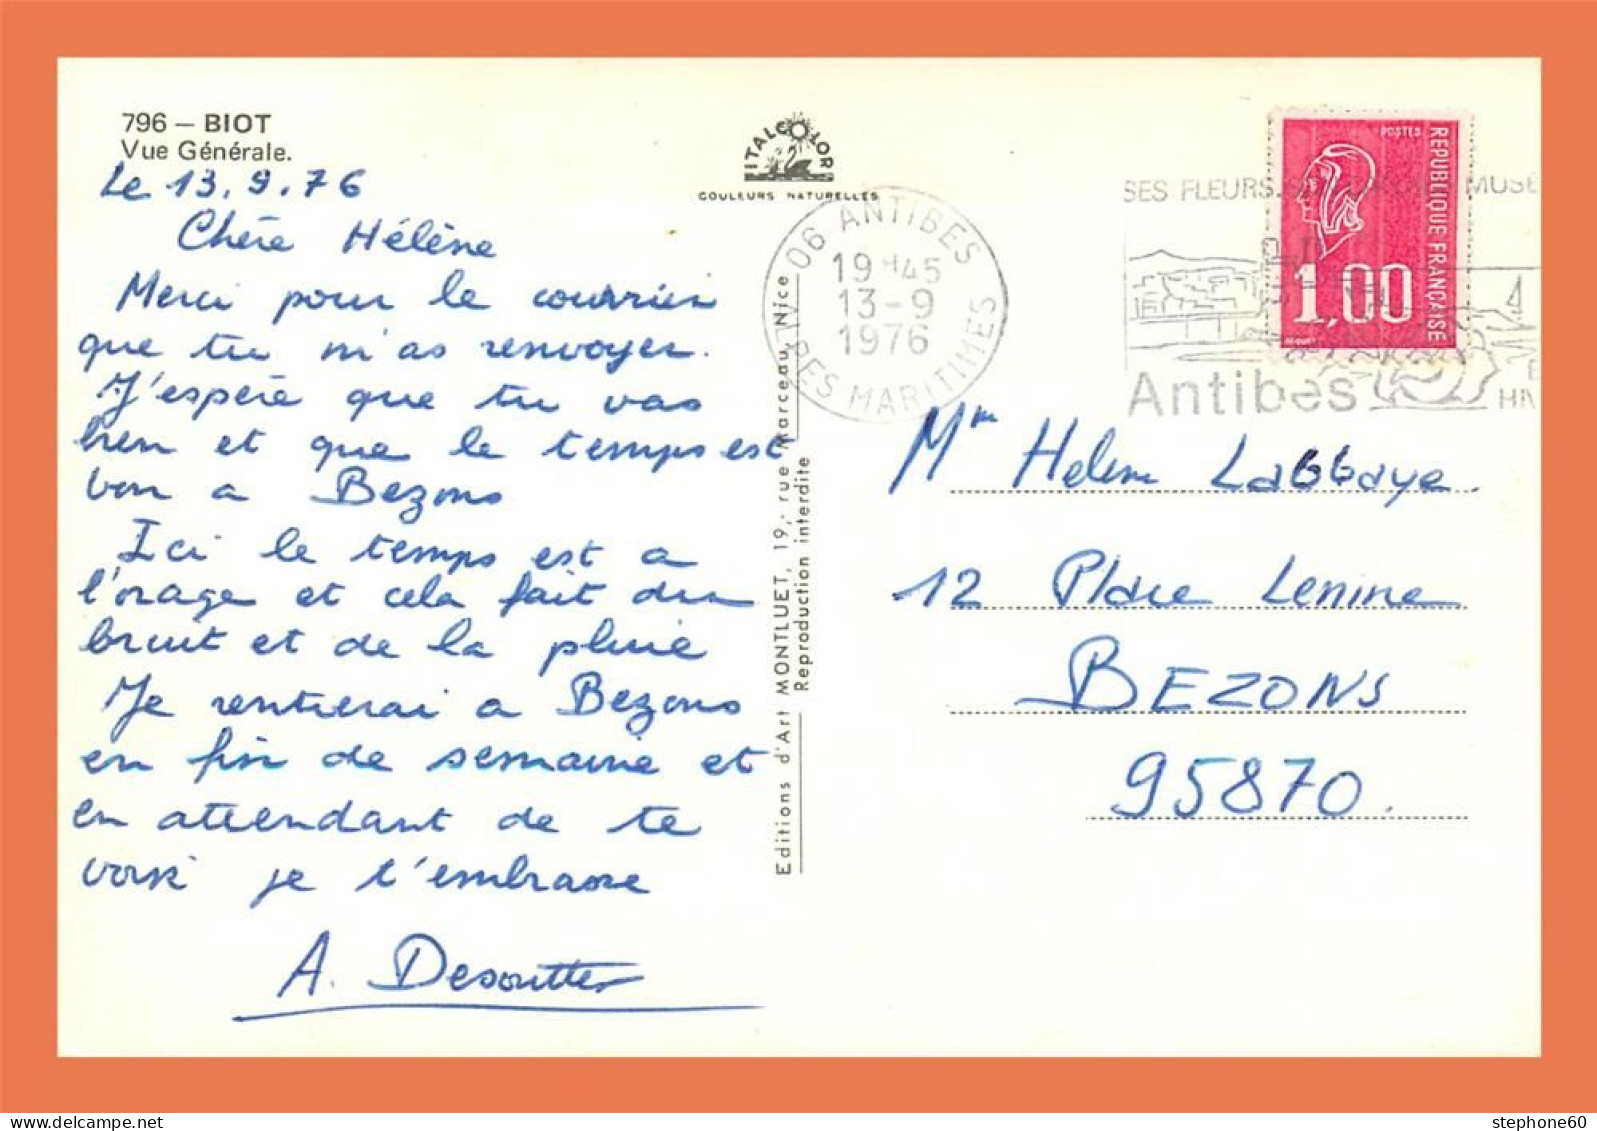 796 – BIOT
Vue Générale.
Le 13.9.76
Chère Hélène
Merci pour le courrier
que tu m'as renvoyer.
J'espère que tu vas
bien et que le temps est
bon a Bezons
Ici le temps est a
l'orage et cela fait du
bruit et de la pluie
Je rentrerai a Bezons
en fin de semaine et
en attendant de te
voir je t'embrasse
A. Desoutter
ITALCOLOR
COULEURS NATURELLES
Editions d'Art MONTLUET, 19, rue Marceau, Nice
Reproduction interdite
06 ANTIBES
19H45
13-9
1976
ALPES MARITIMES
SES FLEURS MUSÉ
Antibes
POSTES
REPUBLIQUE FRANÇAISE
1,00
BEQUET
Mm Helene Labbaye.
12 Place Lenine
BEZONS
95870.
stephone60